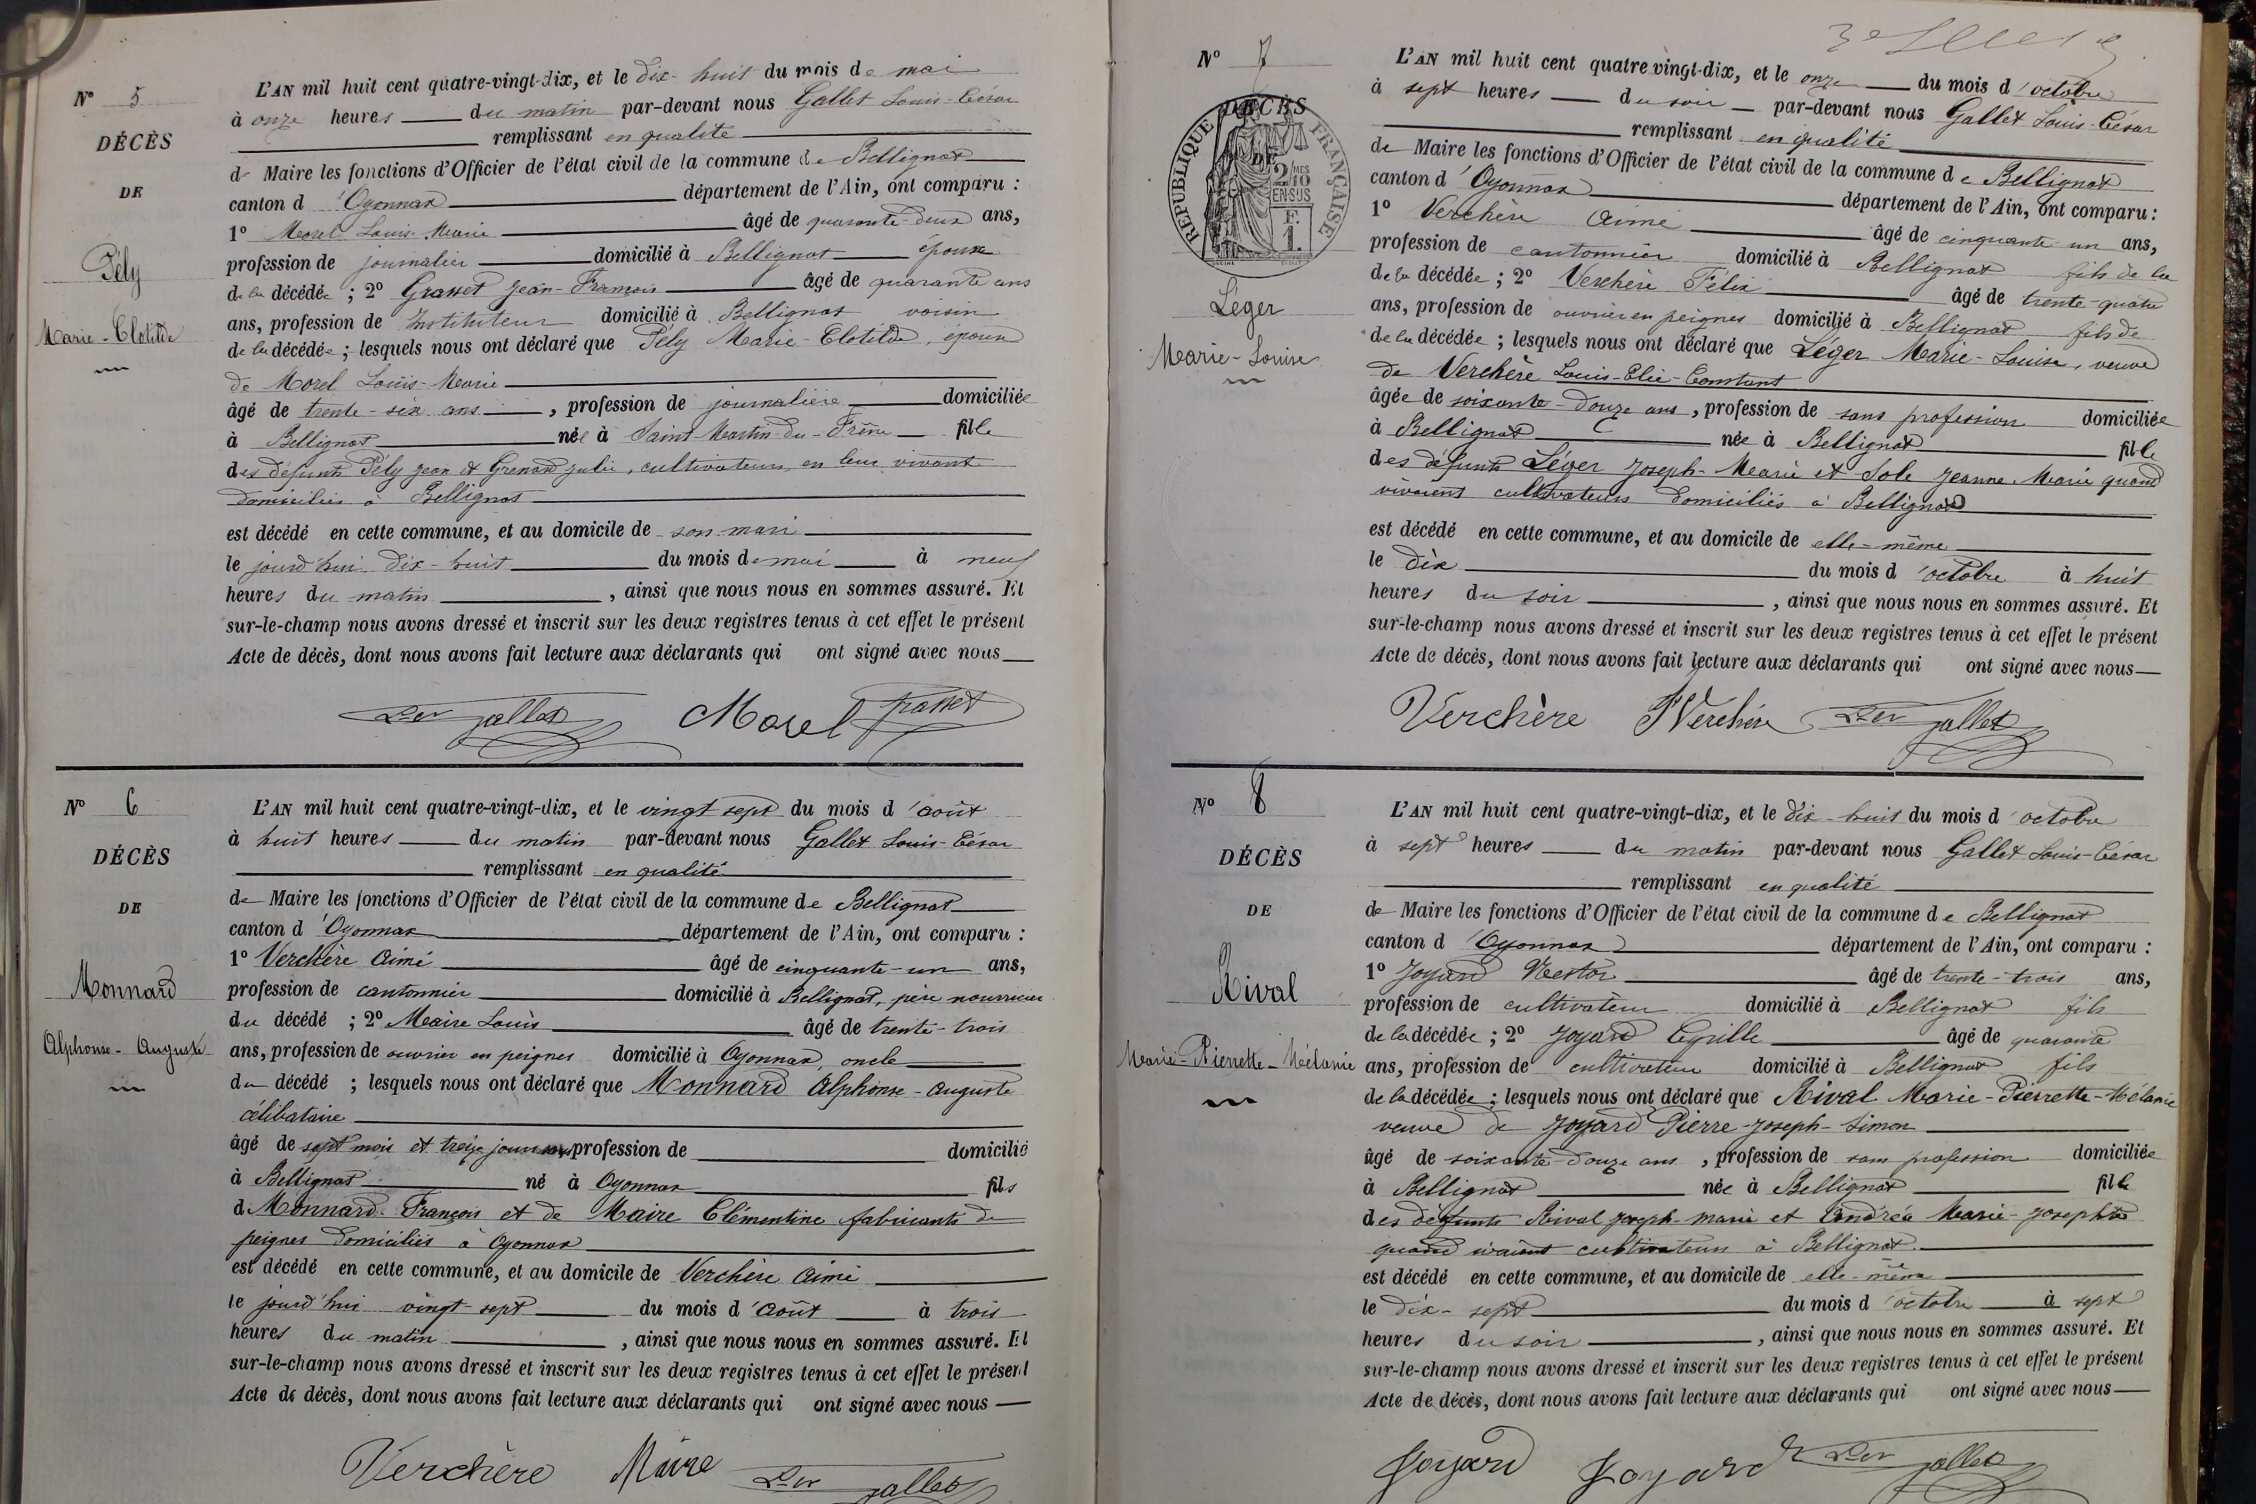 N° 5
DÉCÈS
DE
Pély
Marie-Clotilde
L'AN mil huit cent quatre-vingt-dix, et le dix-huit du mois de mai
à onze heures du matin par-devant nous Gallet Louis-César
remplissant en qualité
de Maire les fonctions d'Officier de l'état civil de la commune de Bellignat
canton d'Oyonnax département de l'Ain, ont comparu :
1° Morel Louis-Marie âgé de quarante-deux ans,
profession de journalier domicilié à Bellignat époux
de la décédée ; 2° Grasset Jean-François âgé de quarante ans
ans, profession de Instituteur domicilié à Bellignat voisin
de la décédée ; lesquels nous ont déclaré que Pély Marie-Clotilde, épouse
de Morel Louis-Marie
âgé de trente-six ans, profession de journalière domiciliée
à Bellignat née à Saint-Martin-du-Frêne fille
des défunts Pély Jean et Grenard Julie, cultivateurs en leur vivant
domiciliés à Bellignat
est décédé en cette commune, et au domicile de son mari
le jourd'hui dix-huit du mois de mai à neuf
heures du matin, ainsi que nous nous en sommes assuré. Et
sur-le-champ nous avons dressé et inscrit sur les deux registres tenus à cet effet le présent
Acte de décès, dont nous avons fait lecture aux déclarants qui ont signé avec nous
Gallet Morel Grasset
N° 6
DÉCÈS
DE
Monnard
Alphonse-Auguste
L'AN mil huit cent quatre-vingt-dix, et le vingt sept du mois d'août
à huit heures du matin par-devant nous Gallet Louis-César
remplissant en qualité
de Maire les fonctions d'Officier de l'état civil de la commune de Bellignat
canton d'Oyonnax département de l'Ain, ont comparu :
1° Verchère Aimé âgé de cinquante-un ans,
profession de cantonnier domicilié à Bellignat, père nourricier
du décédé ; 2° Maire Louis âgé de trente-trois
ans, profession de ouvrier en peignes domicilié à Oyonnax, oncle
du décédé ; lesquels nous ont déclaré que Monnard Alphonse-Auguste
célibataire
âgé de sept mois et treize jours profession de domicilié
à Bellignat né à Oyonnax fils
d Monnard François et de Maire Clémentine fabricants de
peignes domiciliés à Oyonnax
est décédé en cette commune, et au domicile de Verchère Aimé
le jourd'hui vingt-sept du mois d'août à trois
heures du matin, ainsi que nous nous en sommes assuré. Et
sur-le-champ nous avons dressé et inscrit sur les deux registres tenus à cet effet le présent
Acte de décès, dont nous avons fait lecture aux déclarants qui ont signé avec nous
Verchère Maire Gallet
N° 7
DÉCÈS
DE
RÉPUBLIQUE FRANÇAISE
2/10 MES
EN SUS
F.
1.
Léger
Marie-Louise
L'AN mil huit cent quatre vingt-dix, et le onze du mois d'octobre
à sept heures du soir par-devant nous Gallet Louis-César
remplissant en qualité
de Maire les fonctions d'Officier de l'état civil de la commune de Bellignat
canton d'Oyonnax département de l'Ain, ont comparu :
1° Verchère Aimé âgé de cinquante-un ans,
profession de cantonnier domicilié à Bellignat fils de la
de la décédée ; 2° Verchère Félix âgé de trente-quatre
ans, profession de ouvrier en peignes domicilié à Bellignat fils de
de la décédée ; lesquels nous ont déclaré que Léger Marie-Louise, veuve
de Verchère Louis-Elie-Constant
âgée de soixante-douze ans, profession de sans profession domiciliée
à Bellignat née à Bellignat fille
des défunts Léger Joseph-Marie et Sole Jeanne Marie quand
vivaient cultivateurs domiciliés à Bellignat
est décédé en cette commune, et au domicile de elle-même
le dix du mois d'octobre à huit
heures du soir, ainsi que nous nous en sommes assuré. Et
sur-le-champ nous avons dressé et inscrit sur les deux registres tenus à cet effet le présent
Acte de décès, dont nous avons fait lecture aux déclarants qui ont signé avec nous
Verchère F Verchère Gallet
N° 8
DÉCÈS
DE
Rival
Marie-Pierrette-Mélanie
L'AN mil huit cent quatre-vingt-dix, et le dix-huit du mois d'octobre
à sept heures du matin par-devant nous Gallet Louis-César
remplissant en qualité
de Maire les fonctions d'Officier de l'état civil de la commune de Bellignat
canton d'Oyonnax département de l'Ain, ont comparu :
1° Joyard Nestor âgé de trente-trois ans,
profession de cultivateur domicilié à Bellignat fils
de la décédée ; 2° Joyard Cyrille âgé de quarante
ans, profession de cultivateur domicilié à Bellignat fils
de la décédée ; lesquels nous ont déclaré que Rival Marie-Pierrette-Mélanie
veuve de Joyard Pierre-Joseph-Simon
âgé de soixante-douze ans, profession de sans profession domiciliée
à Bellignat née à Bellignat fille
des défunts Rival Joseph-marie et Andréa Marie-Josephte
quand vivaient cultivateurs à Bellignat
est décédé en cette commune, et au domicile de elle-même
le dix-sept du mois d'octobre à sept
heures du soir, ainsi que nous nous en sommes assuré. Et
sur-le-champ nous avons dressé et inscrit sur les deux registres tenus à cet effet le présent
Acte de décès, dont nous avons fait lecture aux déclarants qui ont signé avec nous
Joyard Joyard Gallet